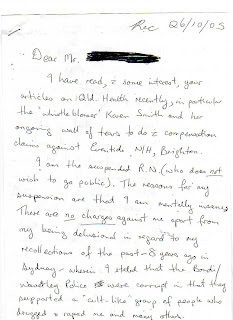 Rec 26/10/05
Dear Mr.
I have read, c̄ some interest, your
articles on Qld. Health recently, in particular
the "whistleblower" Karen Smith and her
ongoing wall of tears to do c̄ compensation
claims against Eventide N/H, Brighton.
I am the suspended R.N. (who does not
wish to go public). The reasons for my
suspension are that I am mentally insane.
There are no charges against me apart from
my being delusional in regard to my
recollections of the past ~8 years ago in
Sydney - wherein I stated that the Bondi/
Waverley Police were corrupt in that they
supported a "cult-like" group of people who
drugged & raped me and many others.